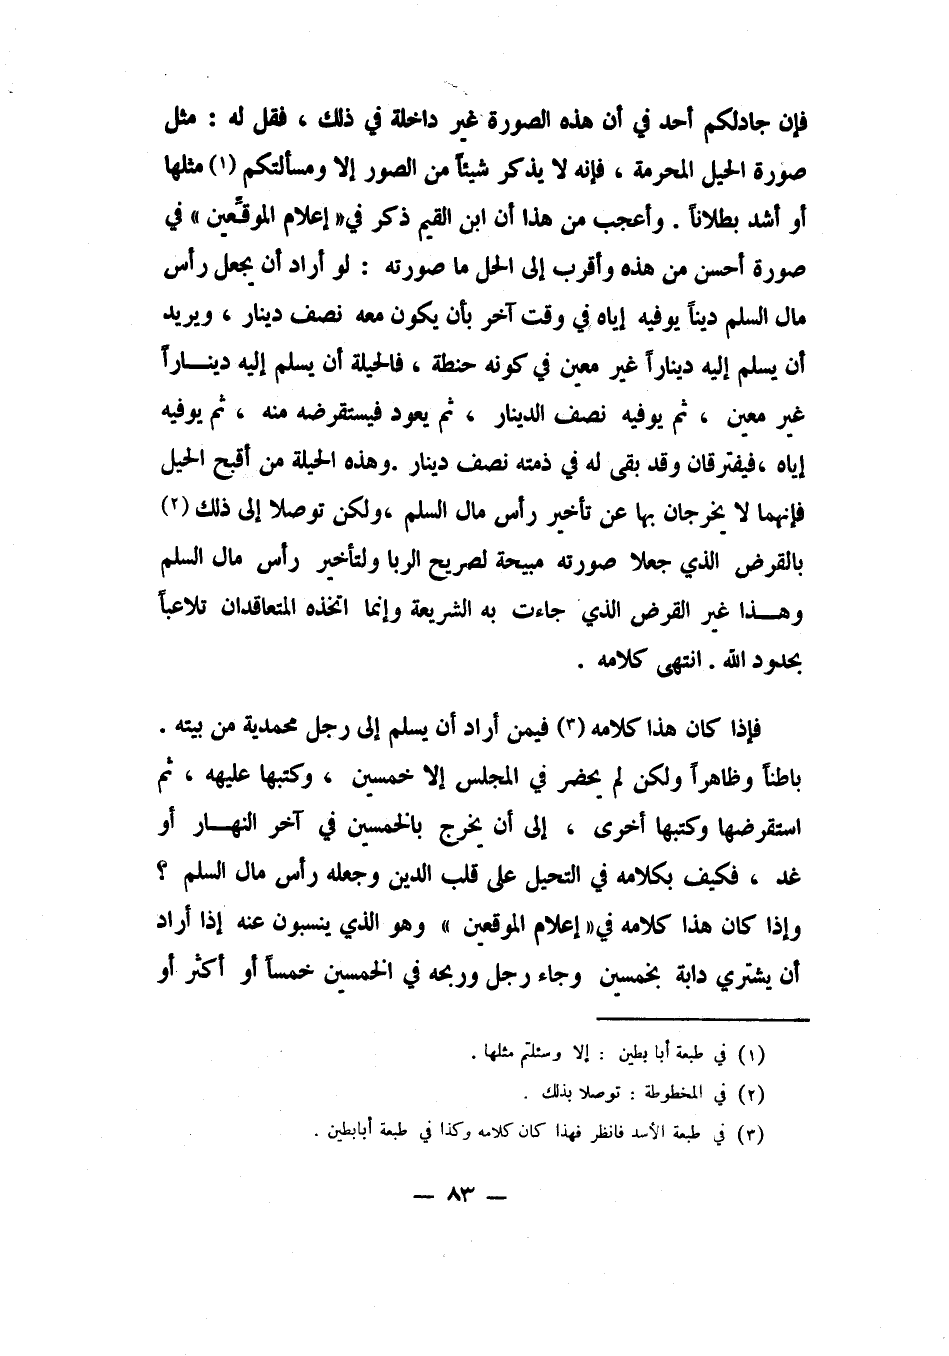 فإن جادلكم أحد في أن هذه الصورة غير داخلة في ذلك ، فقل له : مثل
صورة الحيل المحرمة ، فإنه لا يذكر شيئاً من الصور إلا ومسألتكم (١) مثلها
أو أشد بطلاناً . وأعجب من هذا أن ابن القيم ذكر في « إعلام الموقَّعين » في
صورة أحسن من هذه وأقرب إلى الحل ما صورته : لو أراد أن يجعل رأس
مال السلم ديناً يوفيه إياه في وقت آخر بأن يكون معه نصف دينار ، ويريد
أن يسلم إليه ديناراً غير معين في كونه حنطة ، فالحيلة أن يسلم إليه دينـــاراً
غير معين ، ثم يوفيه نصف الدينار ، ثم يعود فيستقرضه منه ، ثم يوفيه
إياه ، فيفترقان وقد بقى له في ذمته نصف دينار . وهذه الحيلة من أقبح الحيل
فإنهما لا يخرجان بها عن تأخير رأس مال السلم ، ولكن توصلا إلى ذلك (٢)
بالقرض الذي جعلا صورته مبيحة لصريح الربا ولتأخير رأس مال السلم
وهـــذا غير القرض الذي جاءت به الشريعة وإنما اتخذه المتعاقدان تلاعباً
بحدود الله . انتهى كلامه .
فإذا كان هذا كلامه (٣) فيمن أراد أن يسلم إلى رجل محمدية من بيته .
باطناً وظاهراً ولكن لم يحضر في المجلس إلا خمسين ، وكتبها عليهه ، ثم
استقرضها وكتبها أخرى ، إلى أن يخرج بالخمسين في آخر النهـــار أو
غد ، فكيف بكلامه في التحيل على قلب الدين وجعله رأس مال السلم ؟
وإذا كان هذا كلامه في « إعلام الموقعين » وهو الذي ينسبون عنه إذا أراد
أن يشتري دابة بخمسين وجاء رجل وربحه في الخمسين خمساً أو أكثر أو
(١) في طبعة أبا بطين : إلا وسئلتم مثلها .
(٢) في المخطوطة : توصلا بذلك .
(٣) في طبعة الأسد فانظر فهذا كان كلامه وكذا في طبعة أبابطين .
— ٨٣ —